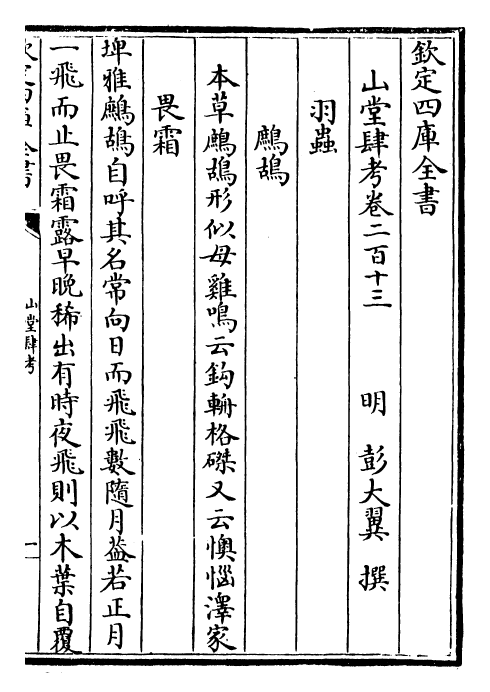 欽定四庫全書
山堂肆考卷二百十三　明　彭大翼　撰
羽蟲
鷓鴣
本草鷓鴣形似母雞鳴云鈎輈格磔又云懊惱澤家
畏霜
埤雅鷓鴣自呼其名常向日而飛飛數隨月葢若正月
一飛而止畏霜露早晚稀出有時夜飛則以木葉自覆
山堂肆考
一